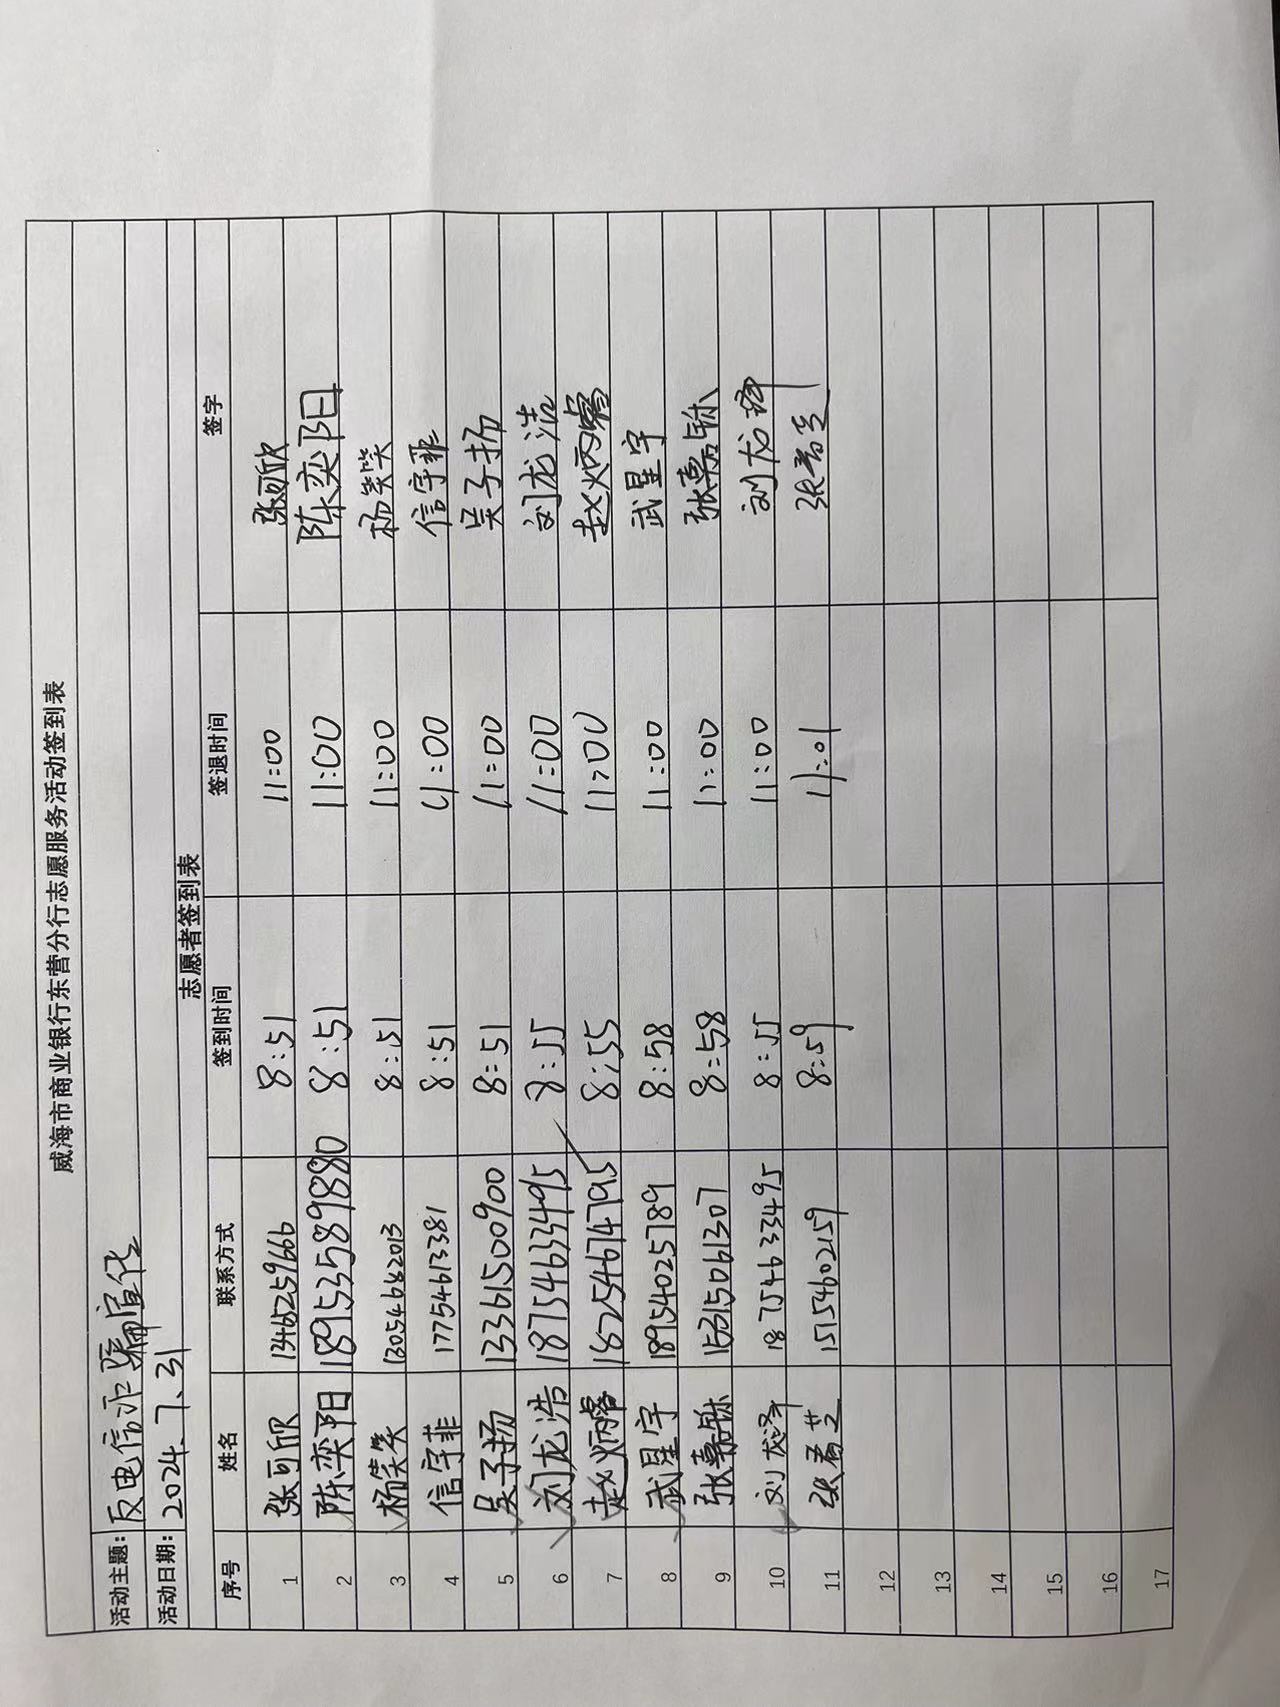 威海市商业银行东营分行志愿服务活动签到表
活动主题: 反电信诈骗宣传
活动日期: 2024.7.31
志愿者签到表
序号 姓名 联系方式 签到时间 签退时间 签字
1 张可欣 13465259666 8:51 11:00 张可欣
2 陈奕阳 18953589880 8:51 11:00 陈奕阳
3 杨笑笑 13054682013 8:51 11:00 杨笑笑
4 信宇菲 17754613381 8:51 11:00 信宇菲
5 吴子扬 13361500900 8:51 11:00 吴子扬
6 刘龙浩 18754633495 8:55 11:00 刘龙浩
7 赵炳睿 18254674795 8:55 11:00 赵炳睿
8 武星宇 18954025789 8:58 11:00 武星宇
9 张嘉铄 15315061307 8:58 11:00 张嘉铄
10 刘龙泽 18754633495 8:55 11:00 刘龙泽
11 张君芝 15754602159 8:59 11:01 张君芝
12
13
14
15
16
17